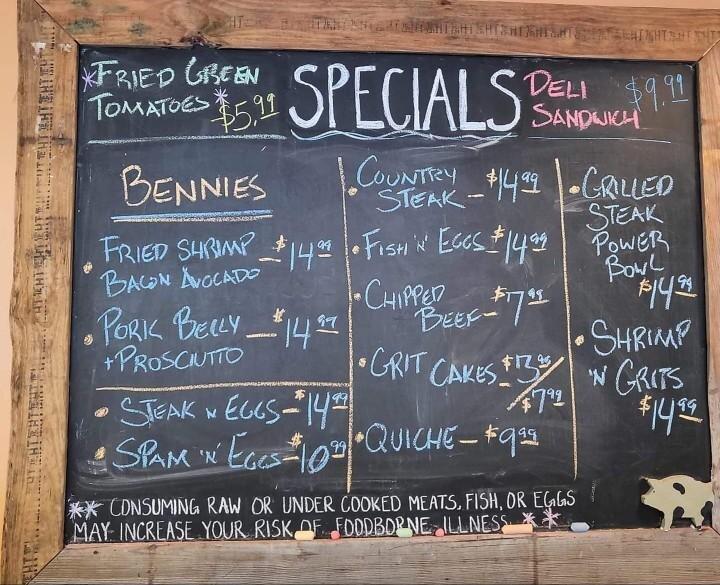 *FRIED GREEN
TOMATOES* $5.99
SPECIALS
DELI
SANDWICH
$9.99
BENNIES
• FRIED SHRIMP - $14.99
BACON AVOCADO
• PORK BELLY - $14.99
+ PROSCIUTTO
• STEAK N EGGS - $14.99
• SPAM 'N' EGGS - $10.99
• COUNTRY
STEAK - $14.99
• FISH 'N' EGGS - $14.99
• CHIPPED
BEEF - $7.99
• GRIT CAKES - $13.99/
$7.99
• QUICHE - $9.99
• GRILLED
STEAK
POWER
BOWL
$14.99
• SHRIMP
'N GRITS
$14.99
** CONSUMING RAW OR UNDER COOKED MEATS, FISH, OR EGGS
MAY INCREASE YOUR RISK OF FOODBORNE ILLNESS **